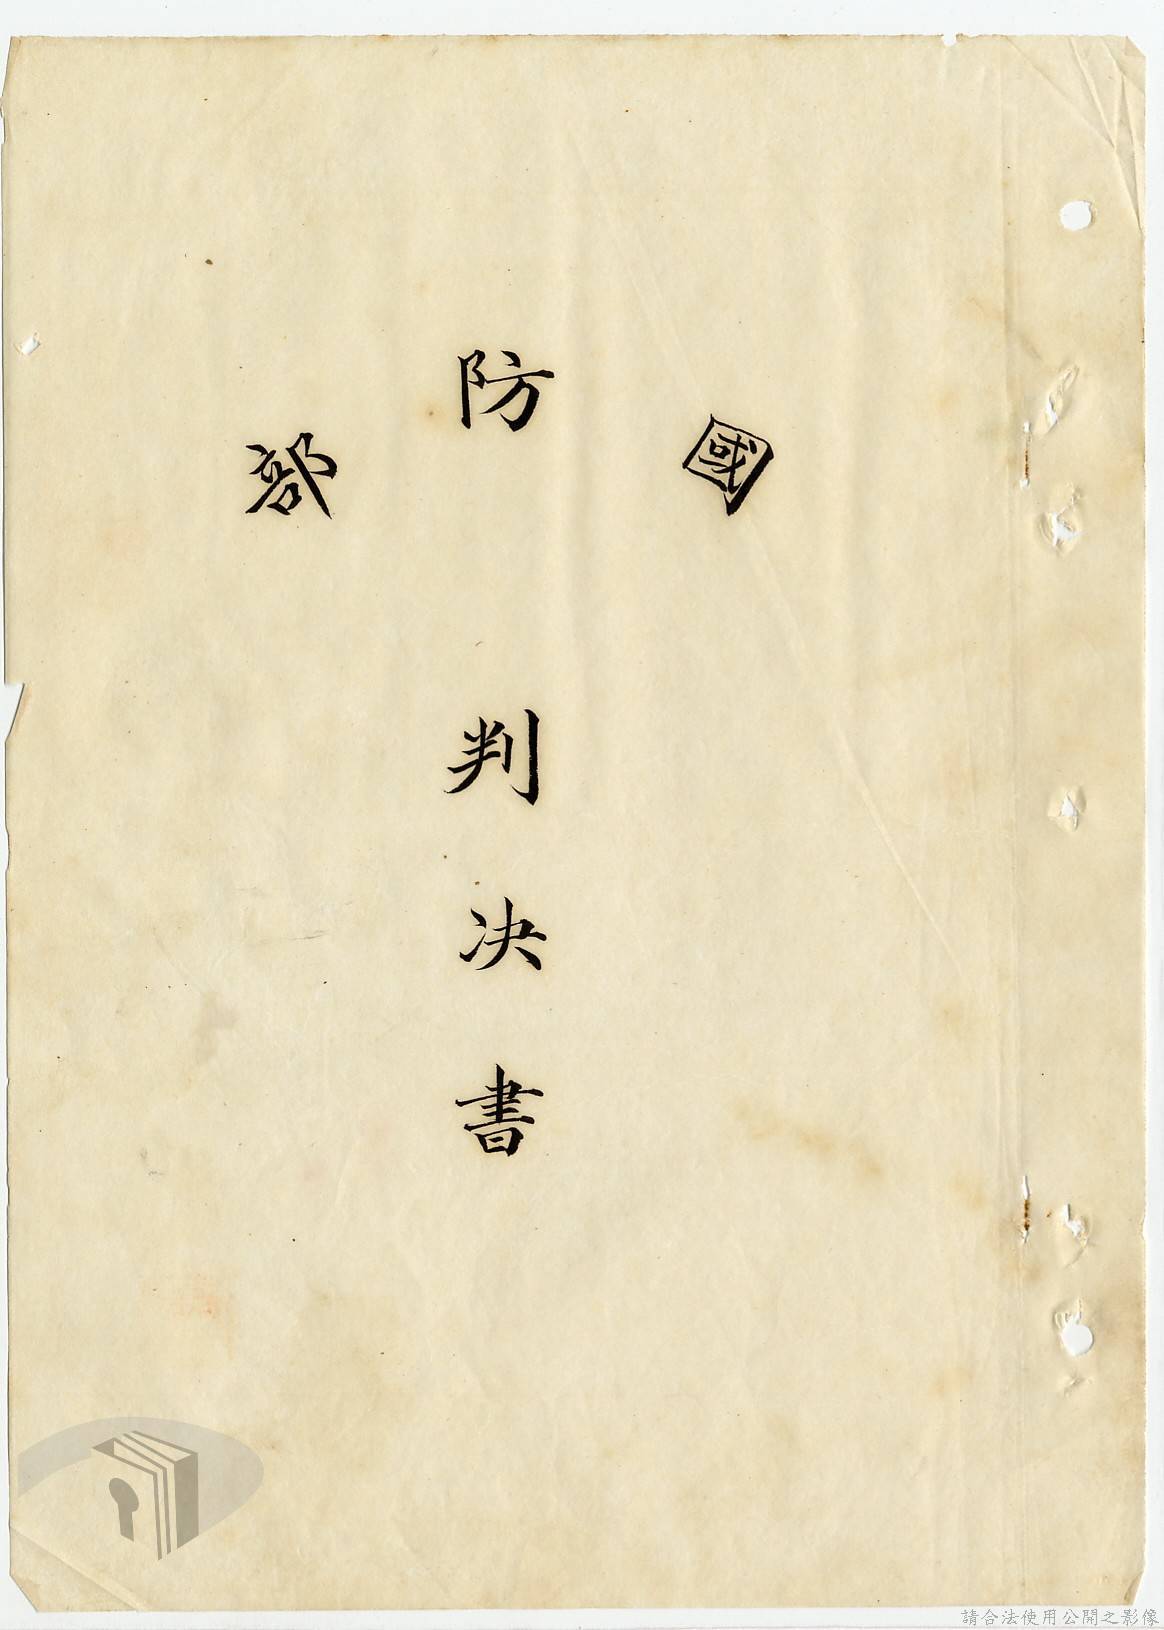 國防部
判决書
請合法使用公開之影像